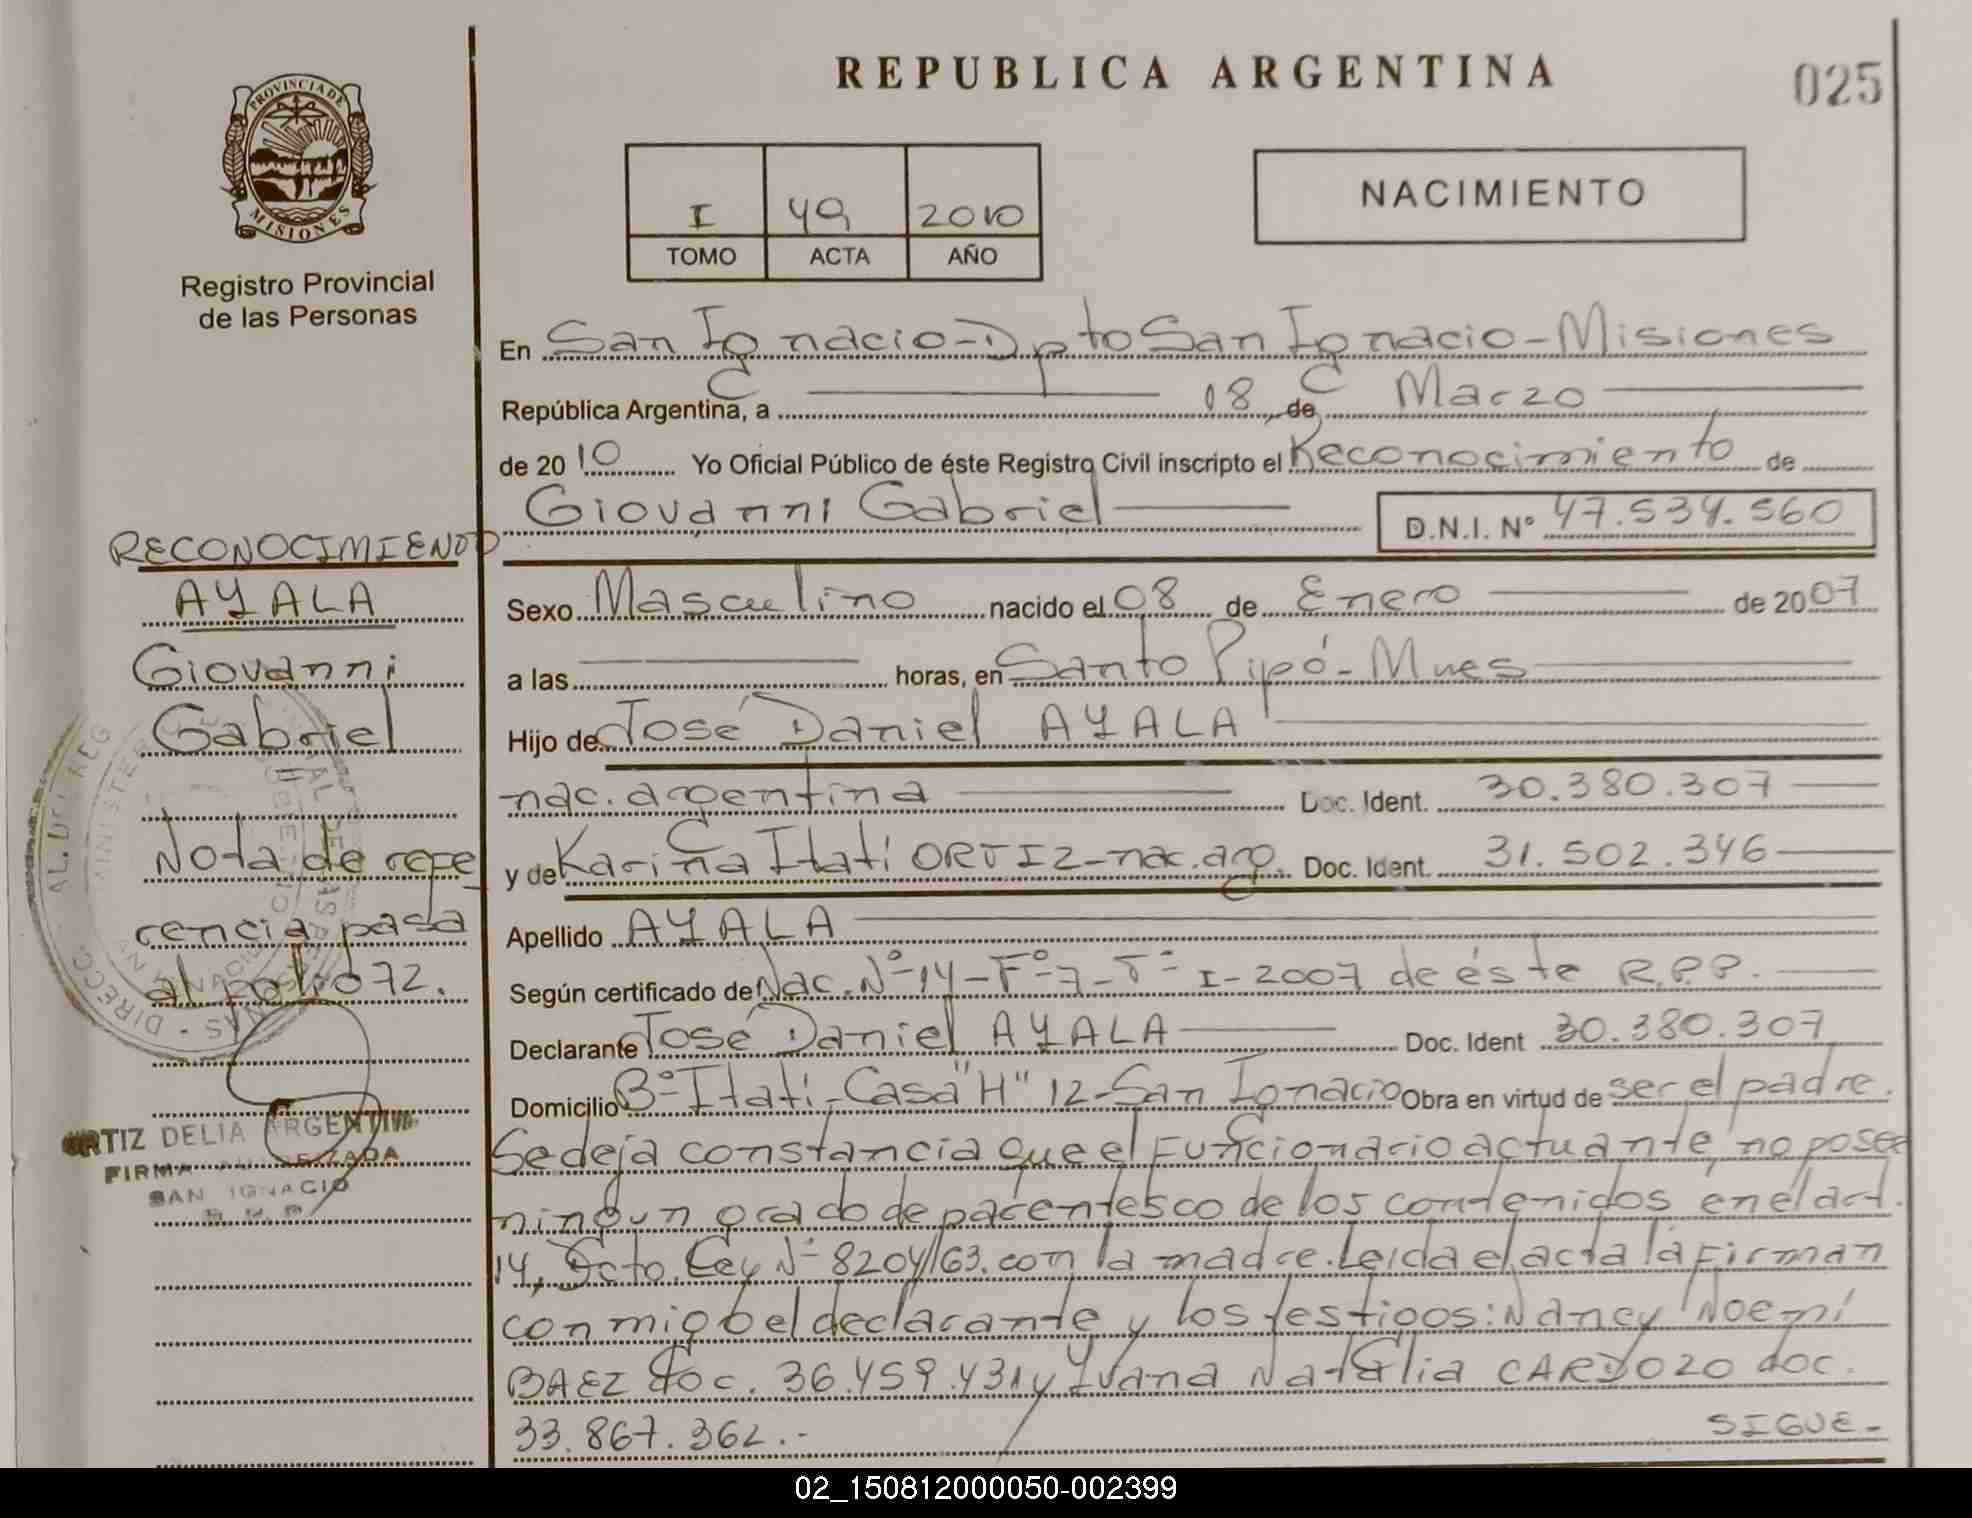 REPUBLICA ARGENTINA
025
PROVINCIA DE
MISIONES
Registro Provincial
de las Personas
I 49 2010
TOMO ACTA AÑO
NACIMIENTO
En San Ignacio-Dpto San Ignacio-Misiones
República Argentina, a 08 de Marzo
de 20 10 Yo Oficial Público de éste Registro Civil inscripto el Reconocimiento de
Giovanni Gabriel D.N.I. Nº 47.534.560
RECONOCIMIENTO
AYALA
Giovanni
Gabriel
Nota de refe
rencia pasa
al folio 72.
ORTIZ DELIA ARGENTINA
FIRMA AUTORIZADA
SAN IGNACIO
Sexo Masculino nacido el 08 de Enero de 2007
a las horas, en Santo Pipó-Mnes
Hijo de José Daniel AYALA
nac. argentina Doc. Ident. 30.380.307
y de Karina Itatí ORTIZ-nac. arg. Doc. Ident. 31.502.346
Apellido AYALA
Según certificado de Nac. Nº 14-Fº 7-Tº I-2007 de éste R.P.P.
Declarante José Daniel AYALA Doc. Ident 30.380.307
Domicilio Bº Itatí-Casa "H" 12-San Ignacio Obra en virtud de ser el padre.
Se deja constancia que el funcionario actuante, no posee
ningun grado de parentesco de los contenidos en el art.
14, Dcto. Ley Nº 8204/63. con la madre. Leída el acta la firman
conmigo el declarante y los testigos: Nancy Noemí
BAEZ doc. 36.459.431 y Ivana Natalia CARDOZO doc.
33.867.362.-
SIGUE-
02_150812000050-002399